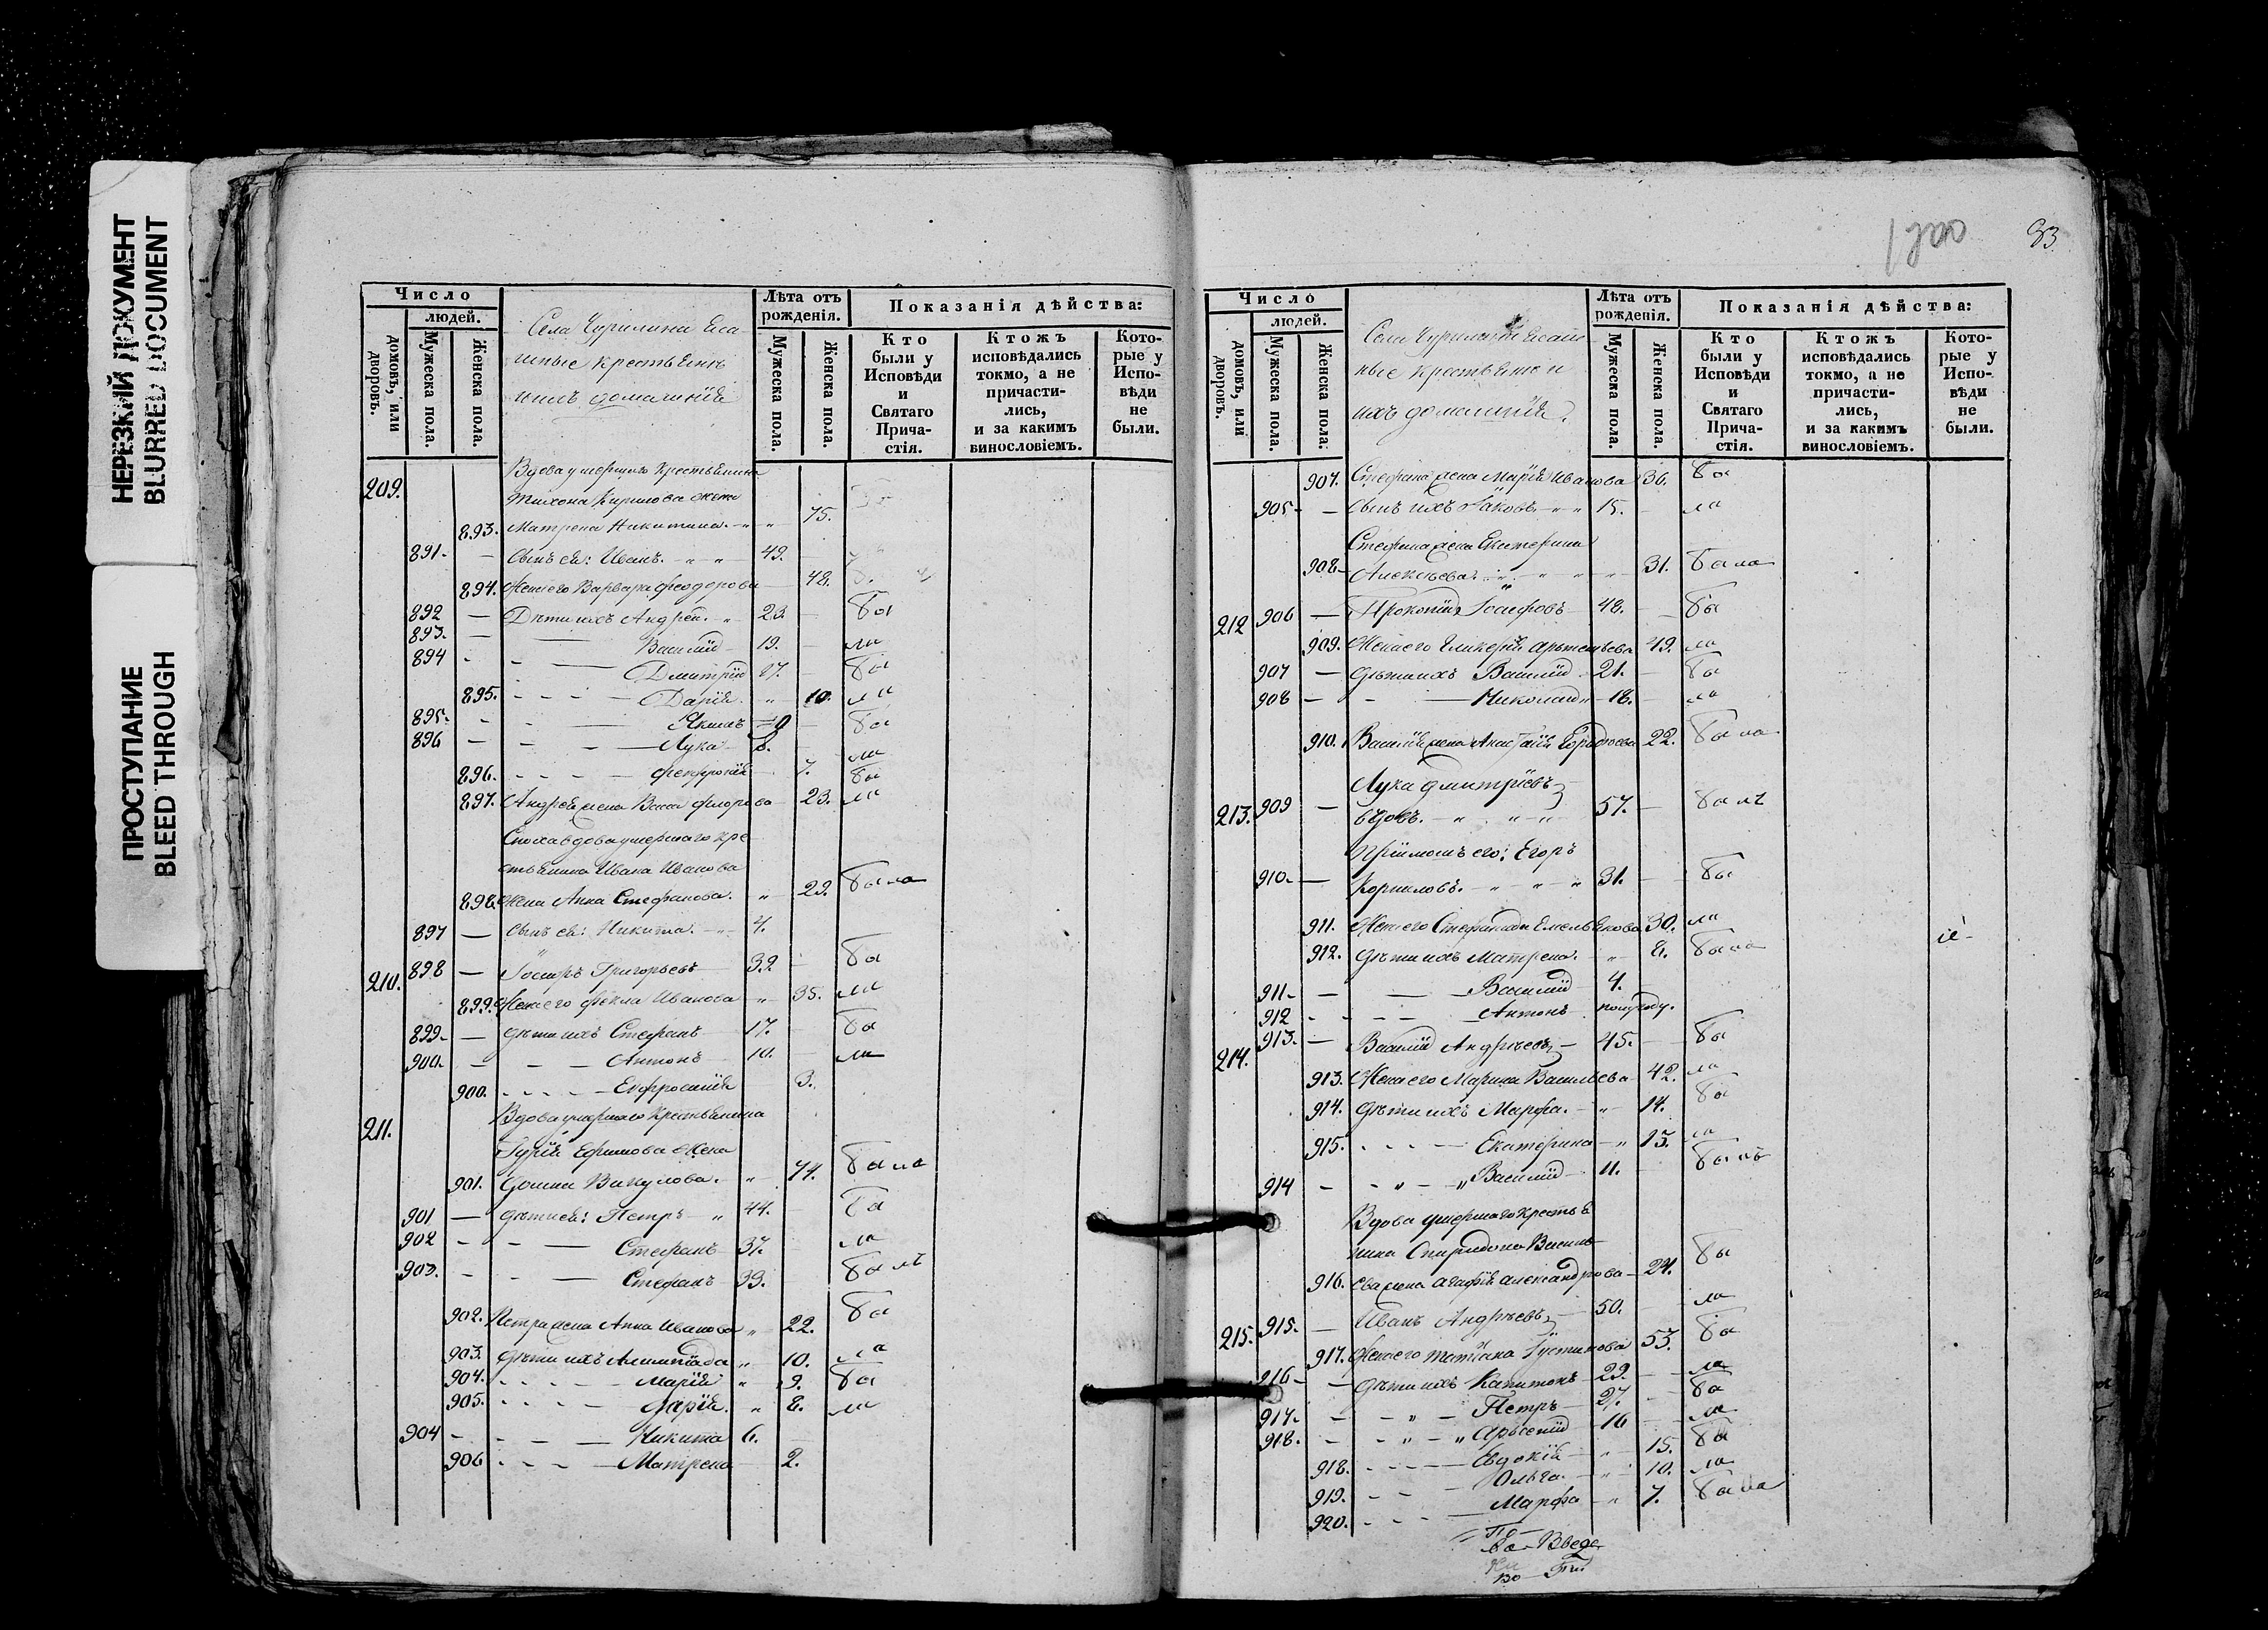 НЕРЕЗКИЙ ДОКУМЕНТ
BLURRED DOCUMENT
ПРОСТУПАНИЕ
BLEED THROUGH
Число
людей.
домовъ, или дворовъ.
Мужеска пола.
Женска пола.
Села Чурилина Еса-
шные крестьяне
ихъ домашнія
Лѣта отъ рожденія.
Мужеска пола.
Женска пола.
Показанія дѣйства:
Кто были у Исповѣди и Святаго Прича-стія.
Ктожъ исповѣдались токмо, а не причасти-лись, и за какимъ винословіемъ.
Кото-рые у Испо-вѣди не были.
209. Вдова умершаго крестьянина
Тихона Кирилова жена
893. Матрена Никитина. 75.
891. — Сынъ ея: Иванъ. 49.
894. Жена его Варвара Феодорова 48.
892 — Дѣти ихъ Андрей. 23. бы
893. — Василій 19. ли
894 — Дмитрій 17. бы
895. Дарія 10. ли
895. Якимъ 9 бы
896 — Лука 8. ли
896. Феврония 7. бы
897. Андрея жена Васса Флорова 23. ли
Сноха вдова умершаго кре-
стьянина Ивана Иванова
898. Жена Анна Стефанова. 29. была
897 — Сынъ ея: Никита. 4.
210. 898 — Іосифъ Григорьевъ 39. бы
899. Жена его Фекла Иванова 35. ли
899. — Дѣти ихъ Стефанъ 17. бы
900. — Антонъ 10. ли
900. Евфросинія 3.
211. Вдова умершаго крестьянина
Гурія Ефимова жена
901. Домна Викулова. 74. была
901 — Дѣти ея: Петръ 44. бы
902 — Стефанъ 37. ли
903. — Стефанъ 33. былъ
902. Петра жена Анна Иванова 22. бы
903. Дѣти ихъ Алимпіада 10. ла
904. Марія 9. бы
905. Дарія. 8. ли
904 — Никита 6.
906 Матрена 2.
83
Число
людей.
домовъ, или дворовъ.
Мужеска пола.
Женска пола.
Села Чурилина Есаш-
ные крестьяне и
ихъ домашнія.
Лѣта отъ рожденія.
Мужеска пола.
Женска пола.
Показанія дѣйства:
Кто были у Исповѣди и Святаго Прича-стія.
Ктожъ исповѣдались токмо, а не причасти-лись, и за какимъ винословіемъ.
Кото-рые у Испо-вѣди не были.
907. Стефана жена Марія Иванова 36. бы
905 — Сынъ ихъ Іаковъ. 15. ли
Стефана жена Екатерина
908 Алексѣева. 31. была
212 906 — Прокопій Іосифовъ 48. бы
909. Жена его Гликерія Арьтемьева 49. ли
907 — Дѣти ихъ Василій 21. бы
908 — Николай 18. ли
910. Василія жена Анастасія 22. была
213. 909 — Лука Дмитріевъ
вдовъ. 57. былъ
910. — Пріимышъ его: Егоръ
Корниловъ. 31. бы
911. Жена его Стефанида Емельянова 30. ли
912. Дѣти ихъ Матрена. 8. была
911 — Василій 4.
912 Антонъ полугоду.
214. 913. — Василій Андреевъ 45. бы
913. Жена его Марина Васильева 42. ли
914. Дѣти ихъ Марфа. 14. бы
915. Екатерина 13. ла
914 — Василій 11. былъ
Вдова умершаго крестья
нина Спиридона Василь
916. ева жена Агафія Александрова 24. бы
215. 915. — Иванъ Андреевъ 50. ли
917. Жена его Татіана Іустинова 53. бы
916 — Дѣти ихъ Капитонъ 29. ли
917. — Петръ 27. бы
918. — Арьсеній 16 ли
918. Евдокія 15. бы
919. Ольга. 10. ли
920. Марфа 7. была